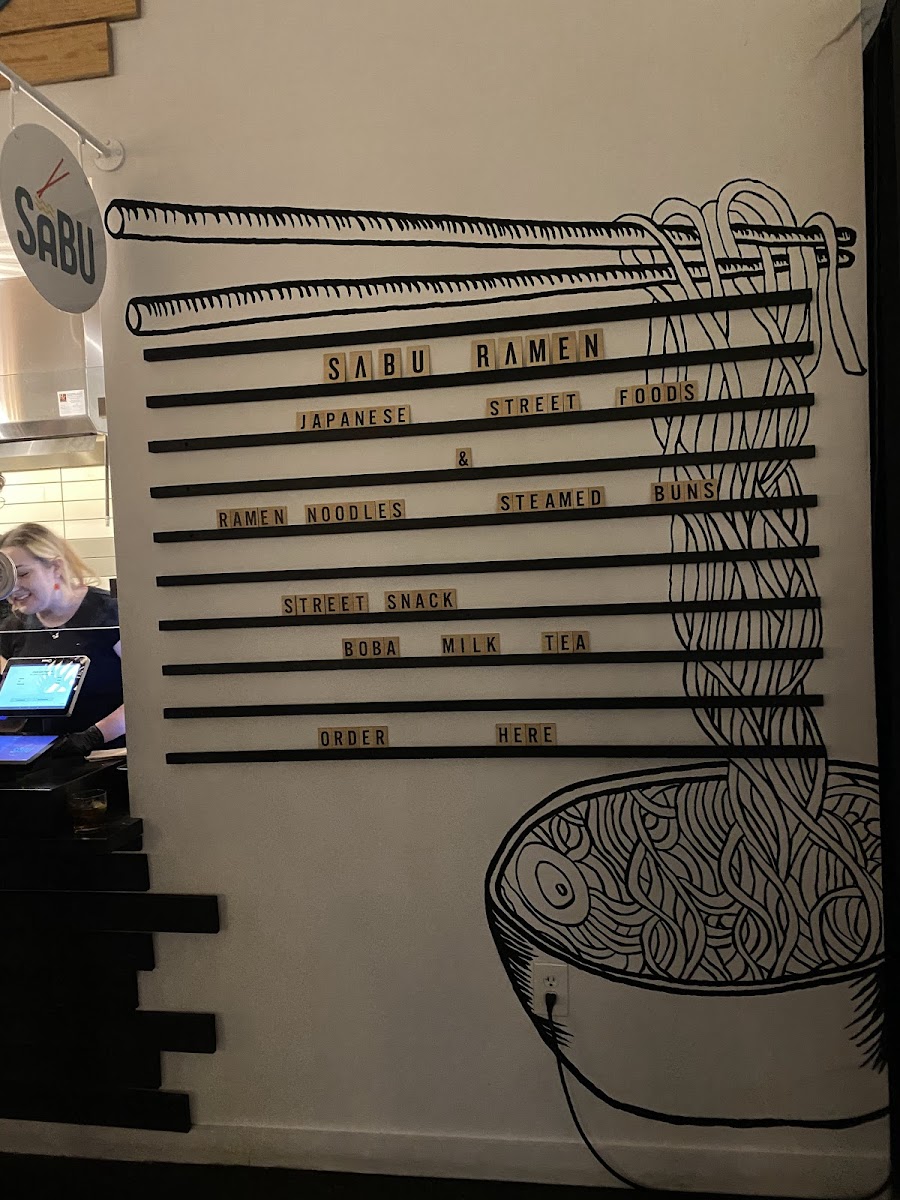 SABU
SABU RAMEN
JAPANESE STREET FOODS
&
RAMEN NOODLES STEAMED BUNS
STREET SNACK
BOBA MILK TEA
ORDER HERE